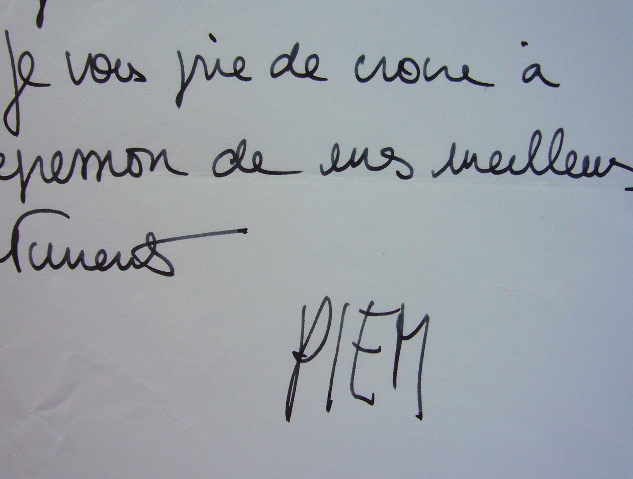 Je vous prie de croire à
expression de mes meilleurs
sentiments
PIEM